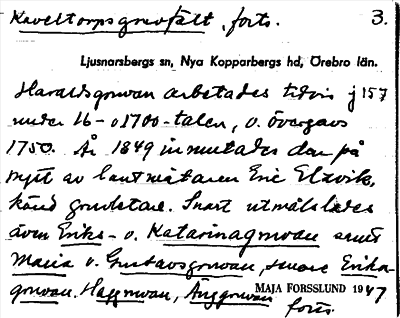 Kaveltorpsgruvfält, forts. 3.
Ljusnarsbergs sn, Nya Kopparbergs hd, Örebro län.
Haraldsgruvan arbetades tidvis j 157
under 16- o 1700-talen, o. övergavs
1750. År 1849 inmutades den på
nytt av lantmätaren Eric Elfvik,
känd gruvletare. Snart utmålslades
även Eriks- o. Katarinagruvan samt
Maria o. Gustavsgruvan, senare Erika-
gruvan, Haggruvan, Änggruvan
MAJA FORSSLUND 1947
forts.